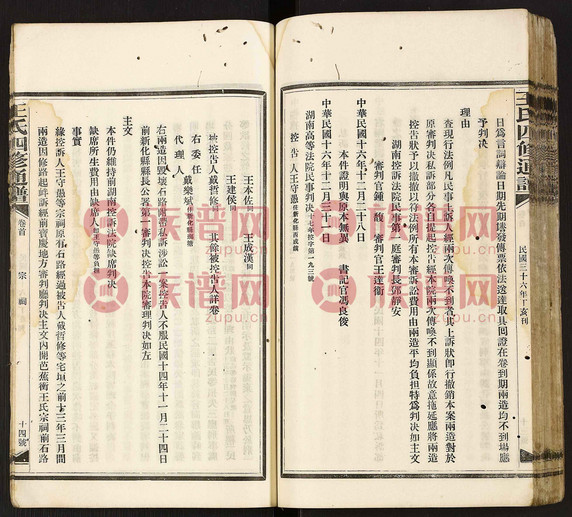 王氏四修通譜
民國三十六年丁亥刊
日為言詞辯論日期先期塡發傳票依法送達取具回證在卷到期兩造均不到場應
予判決
理由
查現行法例凡民事上訴人經兩次傳喚不到者其上訴狀卽行撤銷本案兩造對於
原審判決私訴部分各自提起控告經本院兩次傳喚不到顯係故意拖延應將兩造
控告狀予以撤銷以符法例所有本審訴訟費用由兩造平均負担特為判決如主文
湖南控訴法院民事第一庭審判長鄧靜安
審判官王達衞
審判官鍾 馥
中華民國十六年十二月二十八日
本件證明與原本無異 書記官馮良俊
中華民國十六年十二月三十一日
湖南高等法院民事判決十七年控字第一九三號
控告人王守愚住新化縣西成鎮
王本佐同 王成漢同
王建侯同
被控告人戴哲修 其餘被控告人詳卷
右委任
代理人 戴樂斌
右兩造因毀壞石路附帶私訴涉訟一案控告人不服民國十四年十一月二十四日
前新化縣縣長公署第一審判決控告本院審理判決如左
主文
本件仍維持前湖南控訴法院缺席判決
缺席所生費用由缺席人王守愚等負擔
事實
緣控訴人王守愚等宗祠原有石路經過被告人戴哲修等宅垣之前十三年三月間
兩造因修路起衅訴經前寶慶地方審判廳判決主文內開芭蕉衝王氏宗祠前石路
王氏四修通譜
卷首
宗祠
十四號
族谱网
zupu.cn